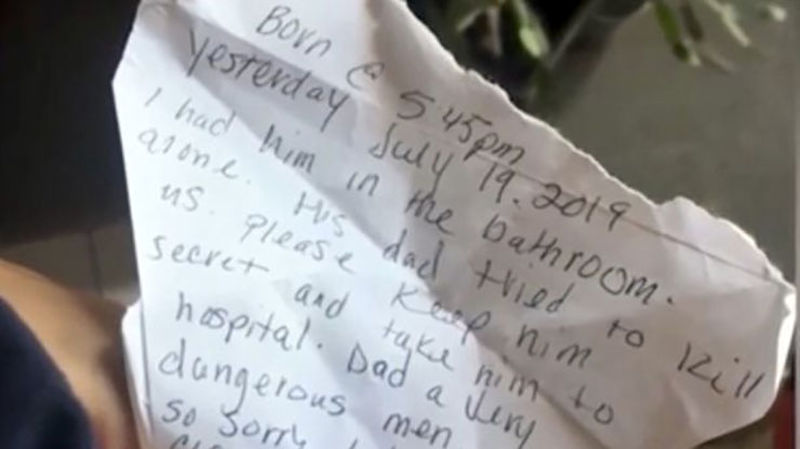 Born @ 5 45pm
Yesterday July 19. 2019
I had him in the bathroom.
alone. His dad tried to kill
us. please keep him
secret and take him to
hospital. Dad a very
dangerous men
so sorry